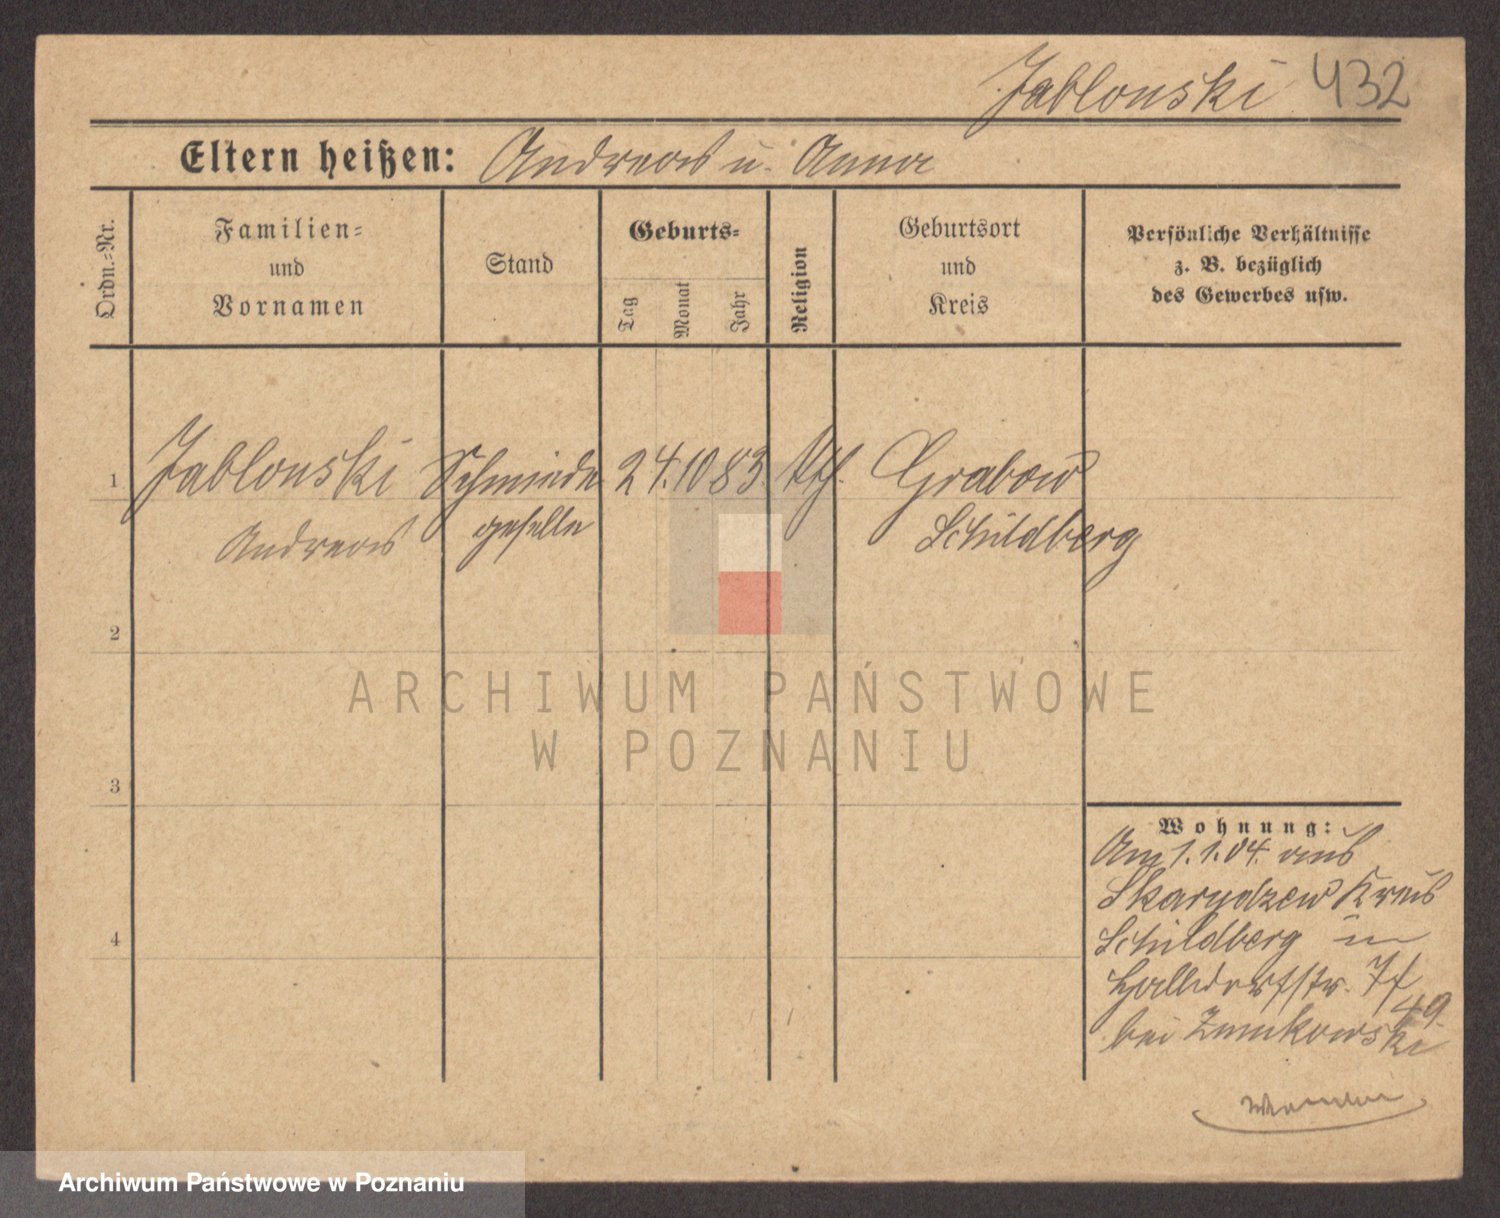 Jablonski 432
Eltern heißen: Andreas u. Anna
Ordn.-Nr.
Familien-
und
Vornamen
Stand
Geburts-
Tag
Monat
Jahr
Religion
Geburtsort
und
Kreis
Persönliche Verhältnisse
z. B. bezüglich
des Gewerbes usw.
1 Jablonski Schmiede 24. 10 83. kth. Grabow
Andreas geselle Schildberg
2
3
4
ARCHIWUM PAŃSTWOWE
W POZNANIU
Wohnung:
Am 1.1.04. aus
Skarydzew Kreis
Schildberg in
49
bei
Archiwum Państwowe w Poznaniu